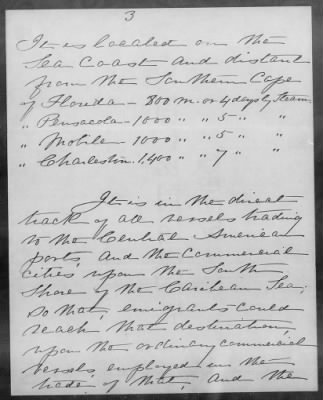 3
It is located on the
Sea Coast and distant
from the Southern Cape
of Florida - 800 m. or 4 days by steam.
" Pensacola - 1000 " " 5 " "
" Mobile - 1000 " " 5 " "
" Charleston. 1,400 " " 7 " "
It is in the direct
track of all vessels trading
to the Central American
ports, and the Commercial
cities upon the South
Shore of the Caribean Sea;
so that, emigrants could
reach that destination,
upon the ordinary commercial
vessels employed in the
trade, of that, and the